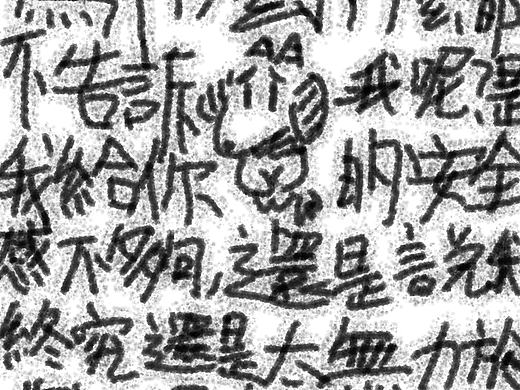 不告訴我呢?還
我給你的安全
感不夠,還是說我
終究還是太無力於